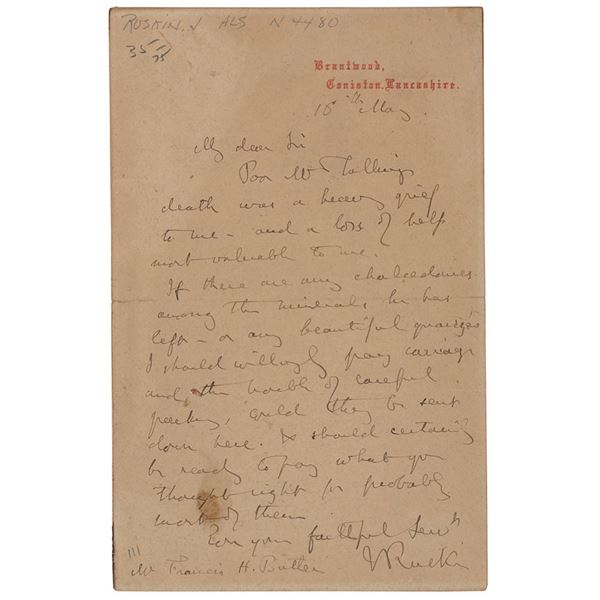 RUSKIN, J ALS N 4480
35/75
Brantwood,
Coniston, Lancashire.
16th May.
My dear Sir
Poor Mr Tallings
death was a heavy grief
to me – and a loss of help
most valuable to me.
If there are any chalcedonies
among the minerals he has
left – or any beautiful quartzes
I should willingly pay carriage
and the trouble of careful
packing, could they be sent
down here. I should certainly
be ready to pay what you
thought right for probably
most of them
Ever your faithful Servt
J Ruskin
111
Mr Francis H. Butler